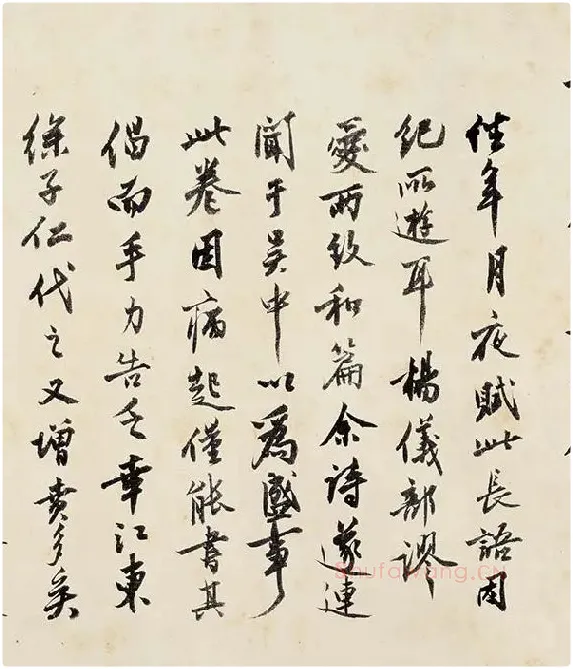 往年月夜賦此長語因
紀所遊耳楊儀部謬
愛兩致和篇余詩遂連
聞于吳中以爲盛事
此卷因病起僅能書其
倡而手力告乏幸江東
徐子仁代之又增賁多矣
Shufawang.cn